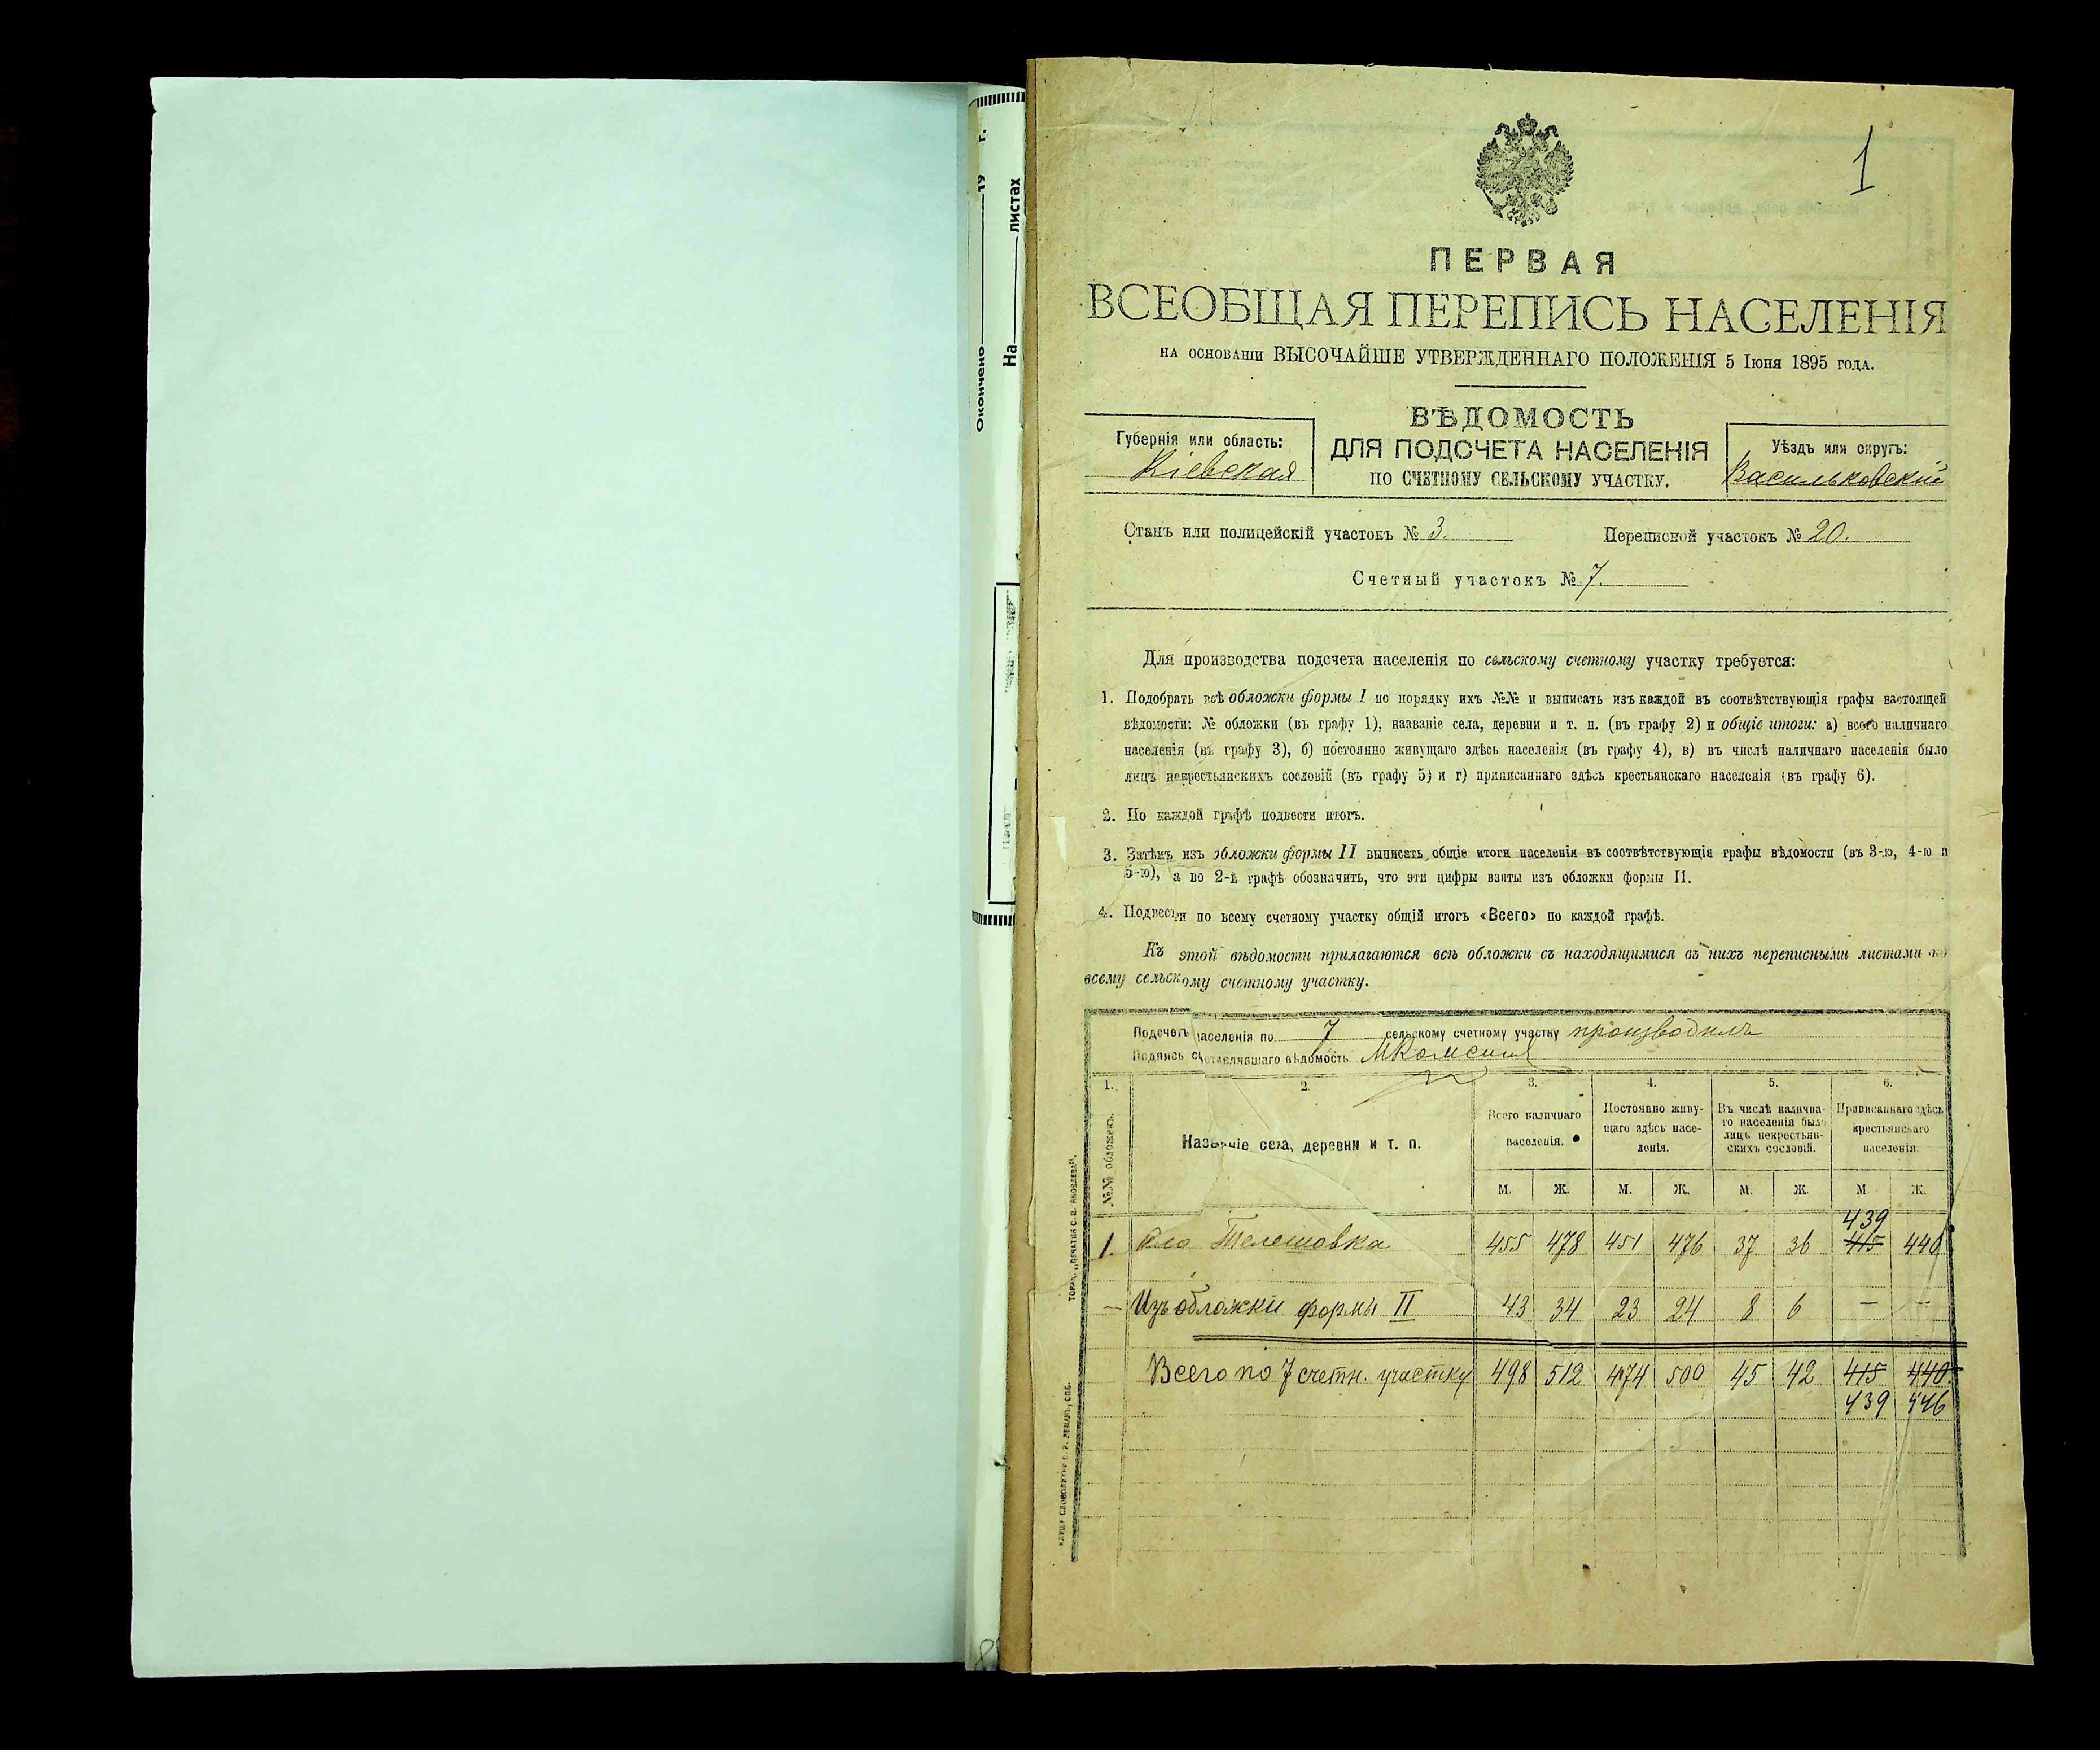 Окончено 19 г.
На листах
1
ПЕРВАЯ
ВСЕОБЩАЯ ПЕРЕПИСЬ НАСЕЛЕНІЯ
НА ОСНОВАНІИ ВЫСОЧАЙШЕ УТВЕРЖДЕННАГО ПОЛОЖЕНІЯ 5 Іюня 1895 ГОДА.
ВѢДОМОСТЬ
ДЛЯ ПОДСЧЕТА НАСЕЛЕНІЯ
ПО СЧЕТНОМУ СЕЛЬСКОМУ УЧАСТКУ.
Губернія или область:
Кіевская
Уѣздъ или округъ:
Васильковскій
Станъ или полицейскій участокъ № 3. Переписной участокъ № 20.
Счетный участокъ № 7.
Для производства подсчета населенія по сельскому счетному участку требуется:
1. Подобрать всѣ обложки формы I по порядку ихъ №№ и выписать изъ каждой въ соотвѣтствующія графы настоящей
вѣдомости: № обложки (въ графу 1), названіе села, деревни и т. п. (въ графу 2) и общіе итоги: а) всего наличнаго
населенія (въ графу 3), б) постоянно живущаго здѣсь населенія (въ графу 4), в) въ числѣ наличнаго населенія было
лицъ некрестьянскихъ сословій (въ графу 5) и г) приписаннаго здѣсь крестьянскаго населенія (въ графу 6).
2. По каждой графѣ подвести итогъ.
3. Затѣмъ изъ обложки формы II выписать общіе итоги населенія въ соотвѣтствующія графы вѣдомости (въ 3-ю, 4-ю и
5-ю), а во 2-й графѣ обозначить, что эти цифры взяты изъ обложки формы II.
4. Подвести по всему счетному участку общій итогъ «Всего» по каждой графѣ.
Къ этой вѣдомости прилагаются всѣ обложки съ находящимися въ нихъ переписными листами по
всему сельскому счетному участку.
Подсчетъ населенія по 7 сельскому счетному участку производилъ
Подпись составлявшаго вѣдомость
1. 2. 3. 4. 5. 6.
№№ обложекъ.
Названіе села, деревни и т. п.
Всего наличнаго
населенія.
Постоянно живу-
щаго здѣсь насе-
ленія.
Въ числѣ налична-
го населенія было
лицъ некрестьян-
скихъ сословій.
Приписаннаго здѣсь
крестьянскаго
населенія.
М. Ж. М. Ж. М. Ж. М Ж.
439
1. Село Телешовка 455 478 451 476 37 36 415 446
— Изъ обложки формы II 43 34 23 24 8 6 — —
Всего по 7 счетн. участку 498 512 474 500 45 42 415 440
439 446